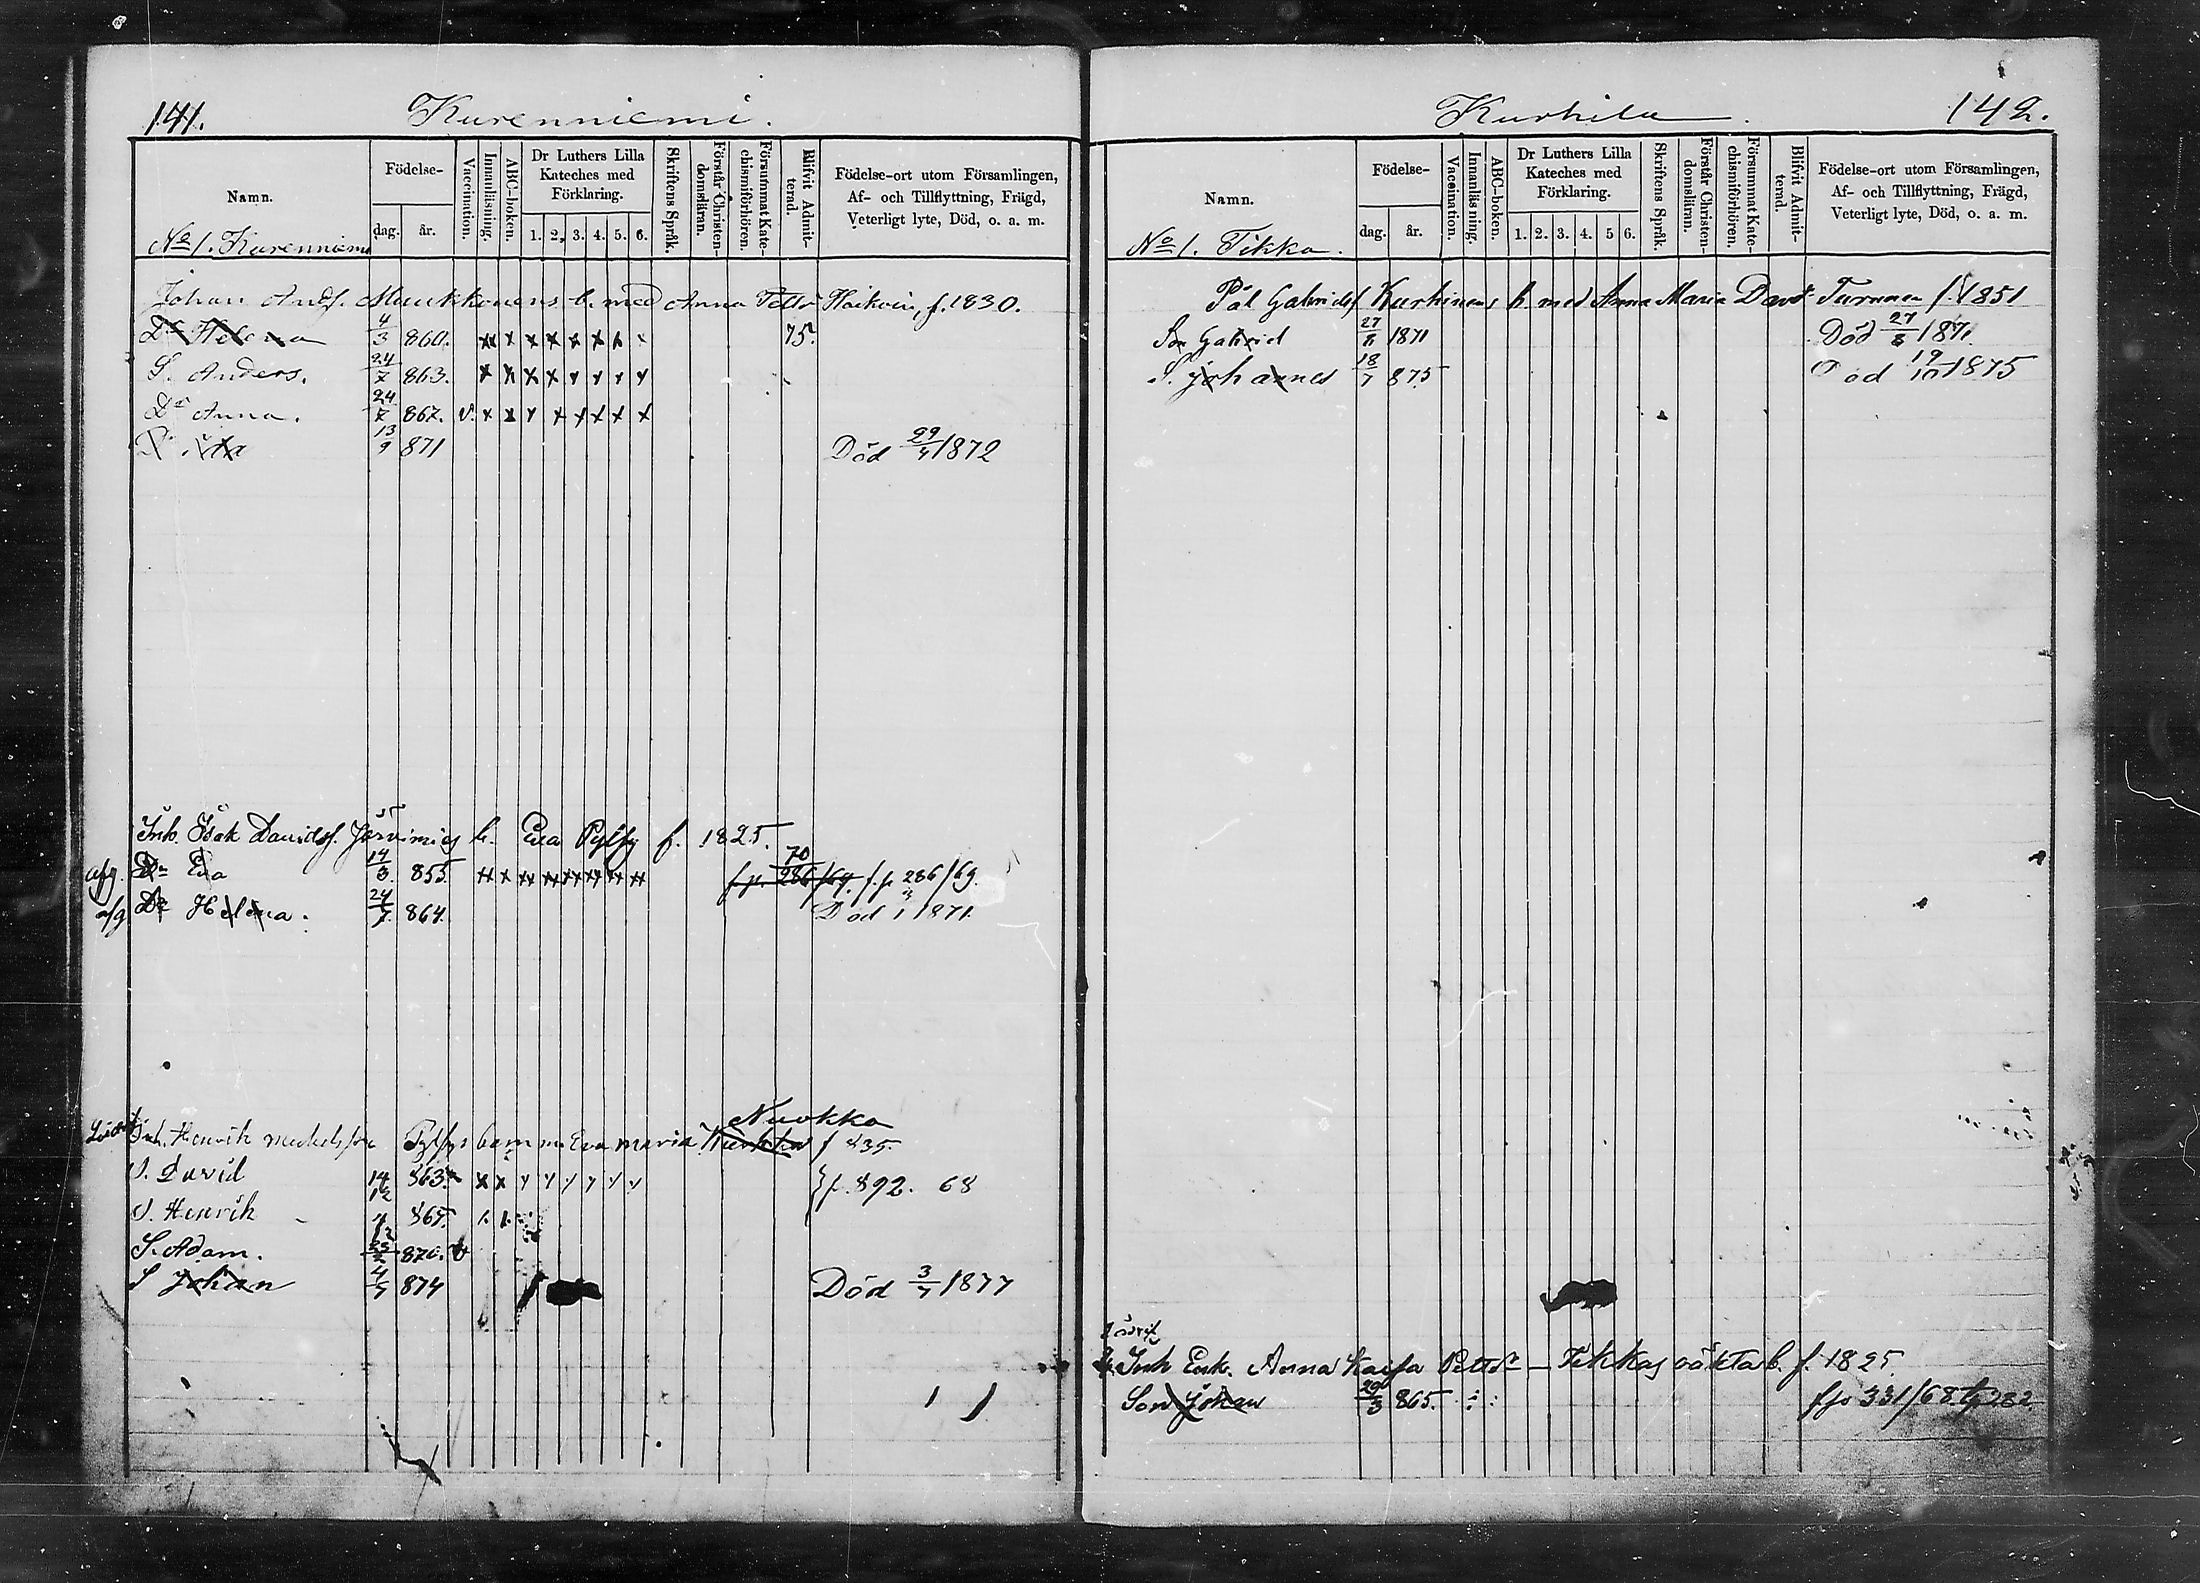 141. Kurenniemi.
Namn. Födelse- dag. år. Vaccination. Innanläsning. ABC-boken. Dr Luthers Lilla Kateches med Förklaring. 1. 2. 3. 4. 5. 6. Skriftens Språk. Förstår Christendomsläran. Försummat Katechismiförhören. Blifvit Admitterad. Födelse-ort utom Församlingen, Af- och Tillflyttning, Frägd, Veterligt lyte, Död, o. a. m.
No 1. Kurenniemi
Johan Andf. Muukkonens b. med Anna Petts Haikoin, f. 1830.
Dr Helena 4/3 860. x x x x x x x 75.
S. Anders. 24/7 863. x x x x y y y y
Dr Anna. 24/7 867. v. x x y x x x x x
Dr 13/9 871 Död 29/4 1872
Inh. Isak Davidsf. b. Eva Pylsy f. 1825.
afg. Dr Eva 14/3. 855. x x x x x x x x 70 f. p. 286/69. f. p. 286/69.
afg Dr Helena. 24/7. 864. Död 1871.
Nuokko
Inh. Henrik Pylsys barn m Eva maria f 835.
S. David 14/12 863. x x y y y y y y } p. 892. 68
S. Henrik 4/12 865.
S. Adam. 23/2 870. v
S Johan 4/5 874 Död 3/4 1877
Kurhila. 142.
Namn. Födelse- dag. år. Vaccination. Innanläsning. ABC-boken. Dr Luthers Lilla Kateches med Förklaring. 1. 2. 3. 4. 5 6. Skriftens Språk. Förstår Christendomsläran. Försummat Katechismiförhören. Blifvit Admitterad. Födelse-ort utom Församlingen, Af- och Tillflyttning, Frägd, Veterligt lyte, Död, o. a. m.
No 1. Tikka.
Pål Gabrielsf Kurhinens b med Anna Maria Davdr Turunen f. 1851
Son Gabriel 27/8 1871 Död 27/8 1871.
S. Johannes 18/7 875 Död 19/10 1875
Inh Enk. Anna Kaisa Pettdr — Tikkas b. f. 1825
Son Johan 29/3 865. f p 331/68. 282.